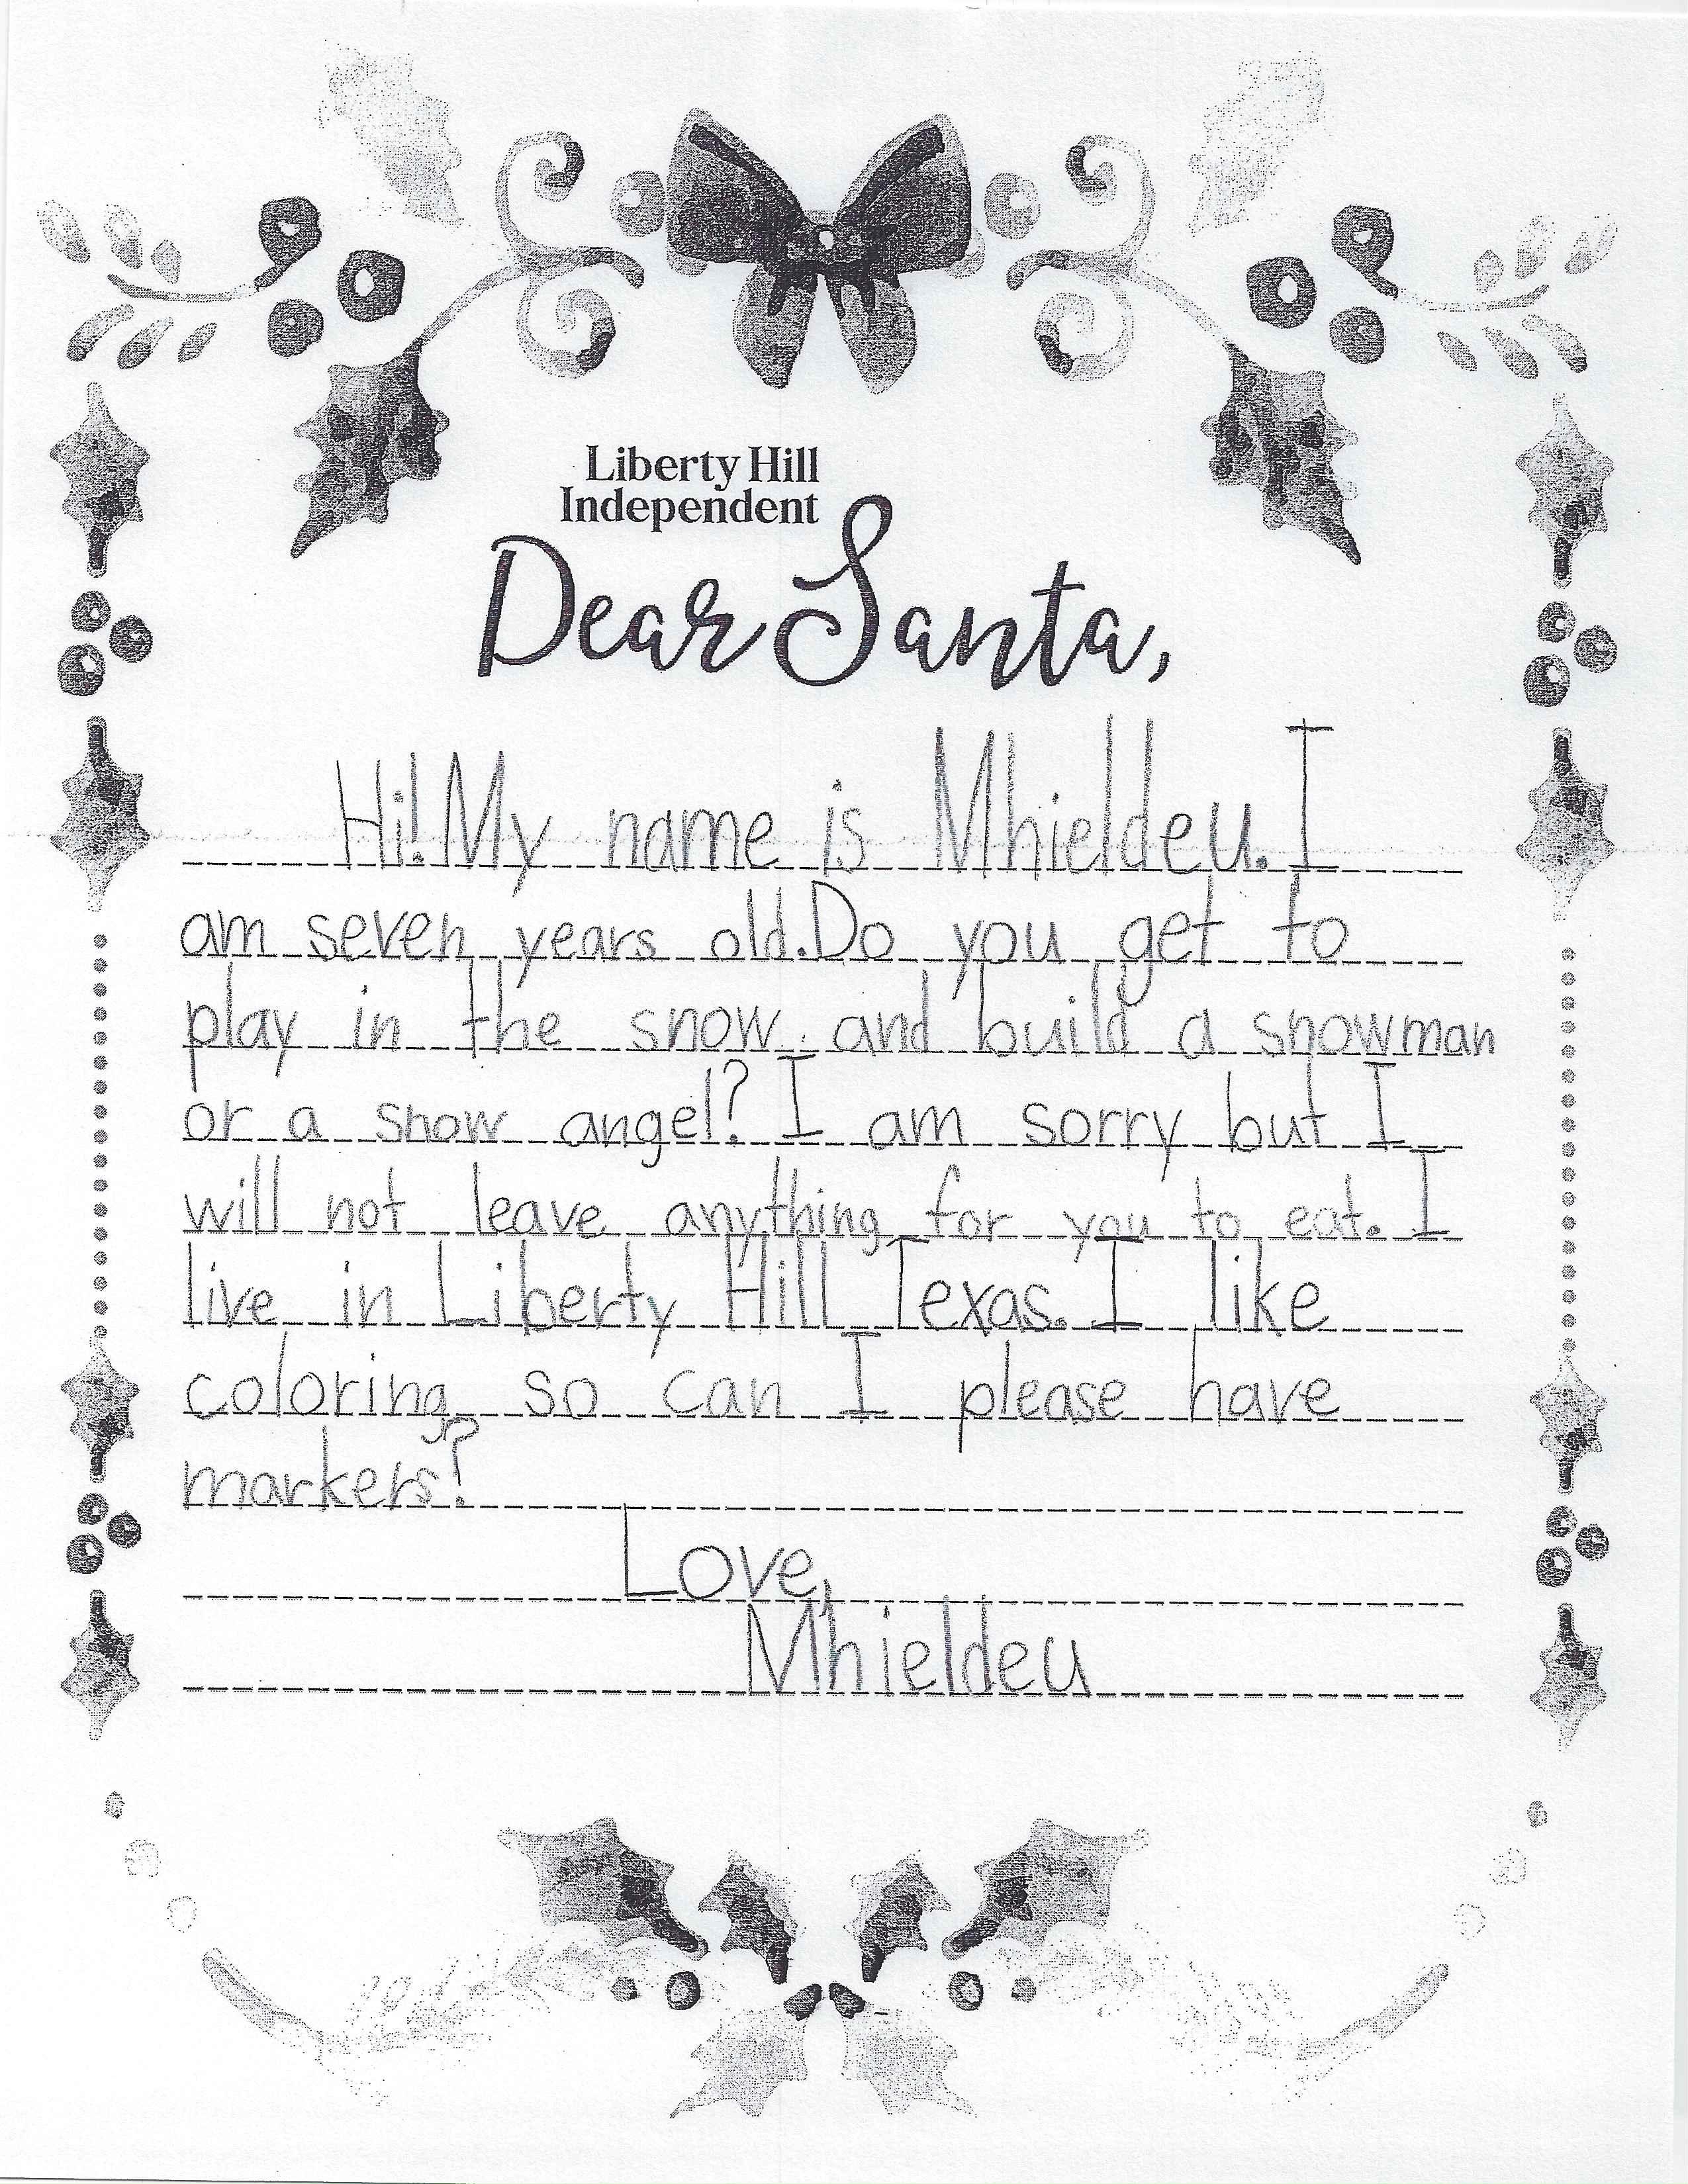 Liberty Hill
Independent
Dear Santa,
Hi! My name is Mhieldeu. I
am seven years old. Do you get to
play in the snow and build a snowman
or a snow angel? I am sorry but I
will not leave anything for you to eat. I
live in Liberty Hill Texas. I like
coloring so can I please have
markers?
Love,
Mhieldeu